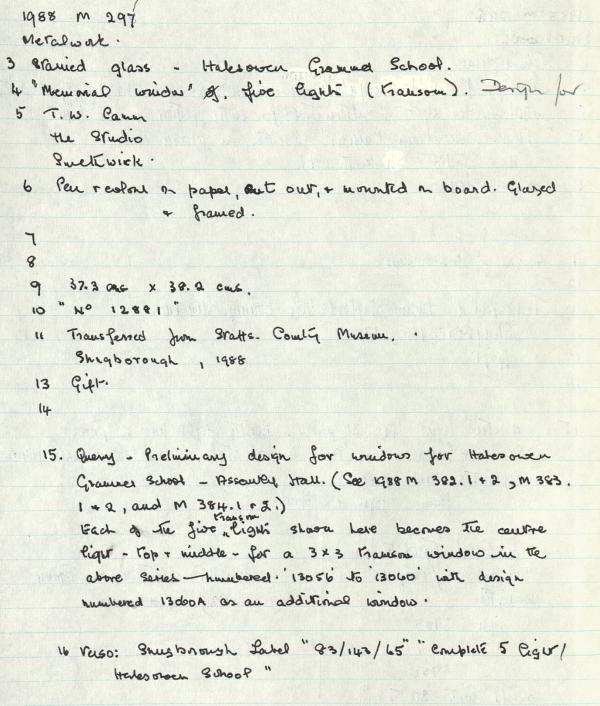 1988 M 297
Metalwork.
3 Stained glass - Halesowen Grammar School.
4 "Memorial window" of five lights (transom). Design for
5 T.W. Camm
The Studio
Smethwick.
6 Pen & colour on paper, cut out, & mounted on board. Glazed
& framed.
7
8
9 37.3 cms x 38.2 cms.
10 "No 12881"
11 Transferred from Staffs. County Museum,
Shugborough, 1988
13 Gift.
14
15. Query - Preliminary design for windows for Halesowen
Grammar School - Assembly Hall. (See 1988 M 382.1+2, M 383.
1+2, and M 384.1+2.)
Each of the five transom lights shown here becomes the centre
light - top + middle - for a 3x3 transom window in the
above series - numbered '13056' to '13060' with design
numbered 13060A as an additional window.
16 Verso: Shugborough Label "83/143/65" "Complete 5 Light/
Halesowen School"